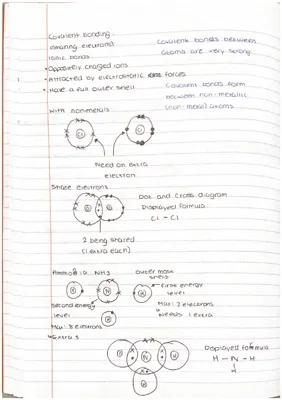 Covalent bonding:
Sharing electrons
Ionic bonds
• Oppositely charged ions
• Attracted by electrostatic forces
• Have a full outer shell
Covalent bonds between
atoms are very strong.
Covalent bonds form
between non-metallic
(non-metal) atoms
With non-metals:
Cl
Cl
Need an extra
electron
Share electrons
Dot and Cross diagram
Displayed formula:
Cl - Cl
2 being shared
(1 extra each)
NH3
Outer most
shell
H
N
H
First energy
level
Second energy
level
H
Max: 2 electrons
Needs 1 extra
Max: 8 electrons
Extra 3
H
N
H
H
Displayed Formula
H - N - H
H